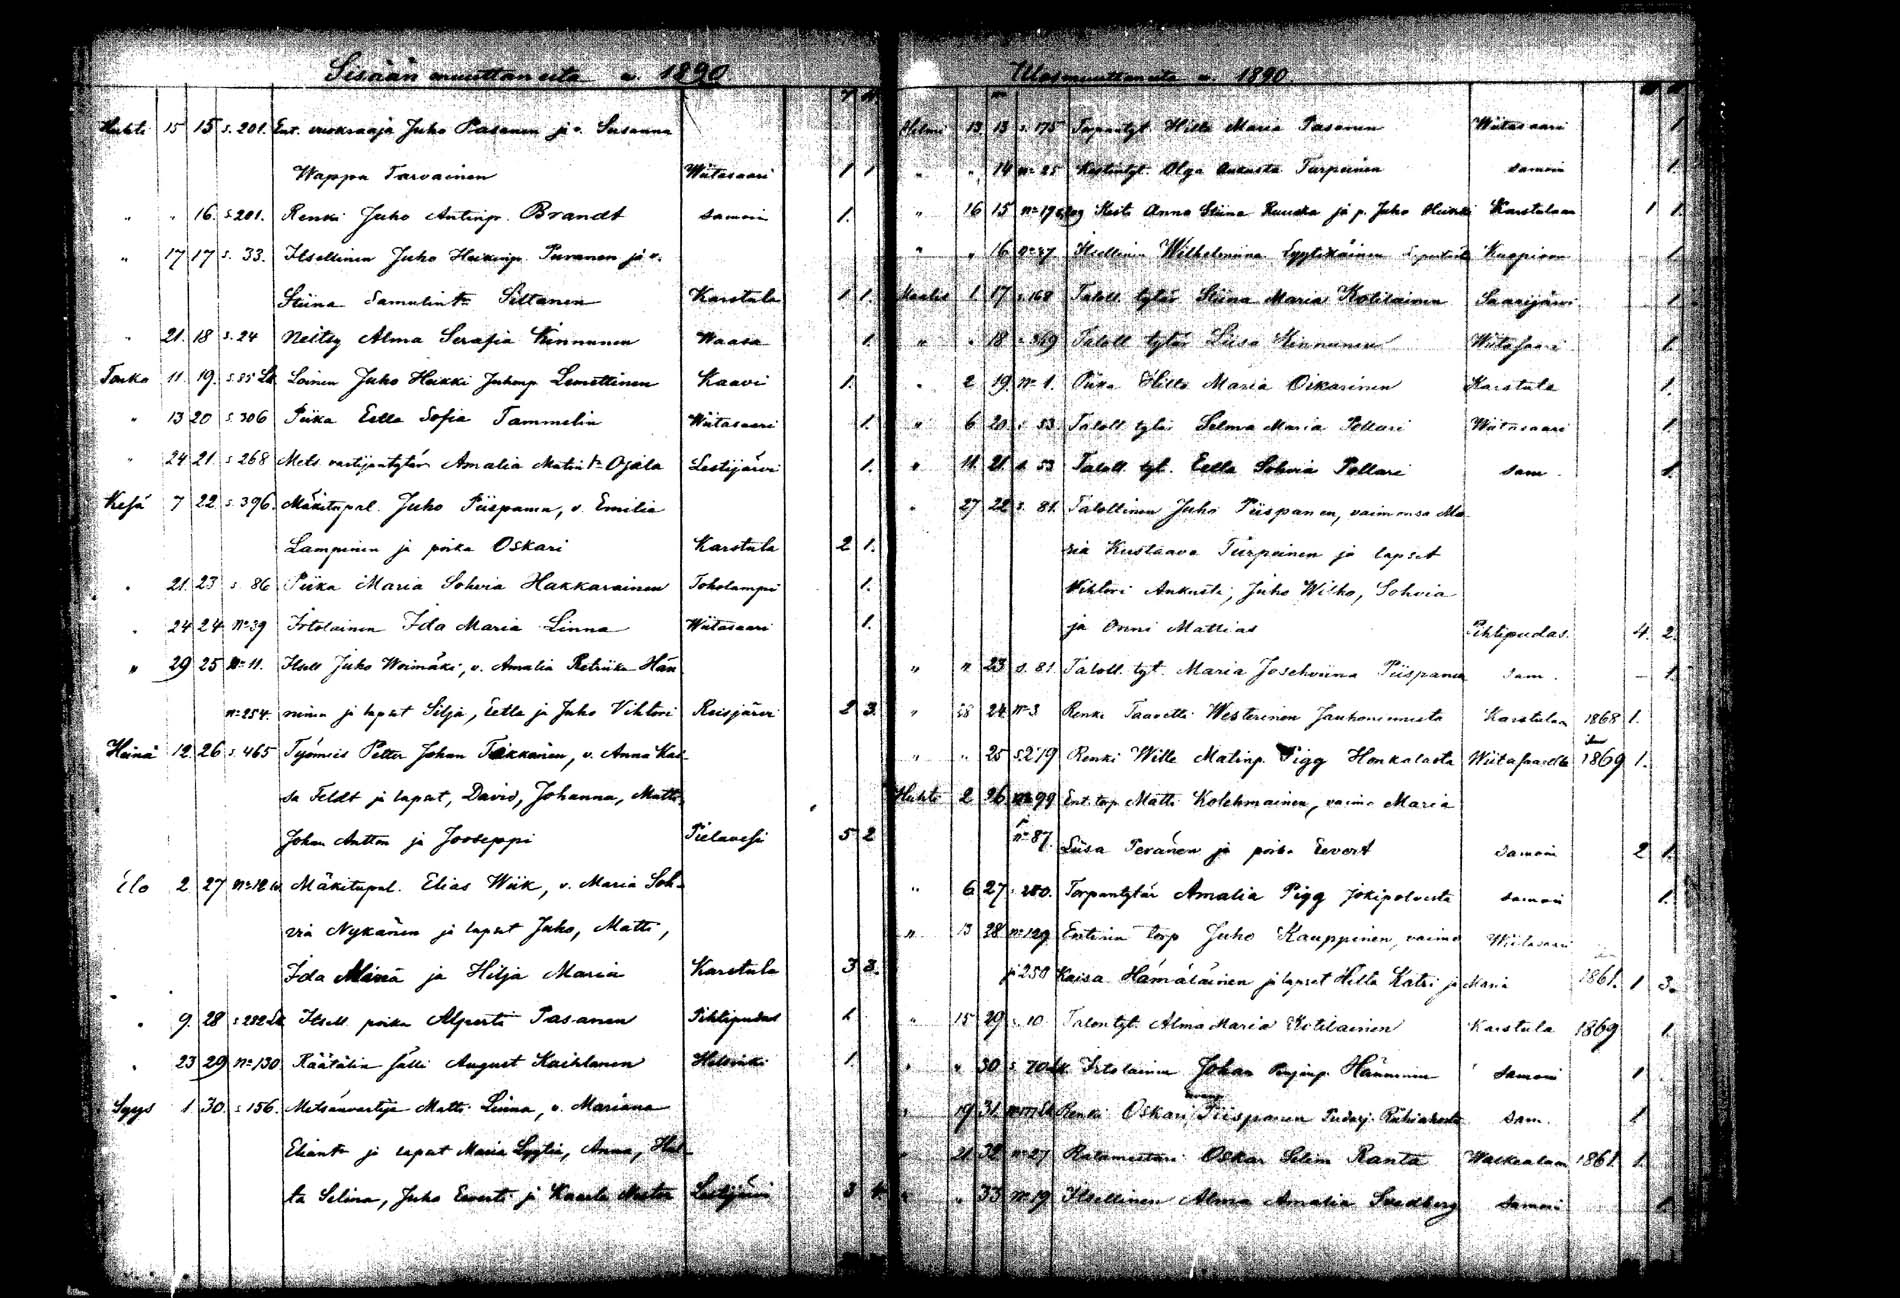 Sisään muuttaneita v. 1890.
Huhti 15 15 s. 201. Ent. vuokraaja Juho Pasanen ja v. Susanna
Wappu Tarvainen Wiitasaari 1 1
" " 16. s. 201. Renki Juho Antinp. Brandt samoin 1.
" 17 17 s. 33. Itsellinen Juho Heikinp. Puranen ja v.
Stiina Samulint:r Siltanen Karstula 1 1.
" 21. 18 s. 24 Neitsy Alma Serafia Kinnunen Waasa 1.
Touko 11. 19. s. 85 Loinen Juho Heikki Juhonp. Lemettinen Kaavi 1.
" 13 20 s. 306 Piika Eella Sofia Tammelin Wiitasaari 1.
" 24 21 s. 268 Mets. vartijantytär Amalia Matint:r Ojala Lestijärvi 1.
Kesä 7 22 s. 396. Mäkitupal. Juho Piispanen, v. Emilia
Lampinen ja poika Oskari Karstula 2 1.
" 21. 23 s. 86 Piika Maria Sohvia Hakkarainen Toholampi 1.
" 24 24 No 39 Irtolainen Ida Maria Linna Wiitasaari 1.
" 29 25 No 11. Itsell. Juho Woimäki, v. Amalia Retriika Hän-
No 254. ninen ja lapset Silja, Eetla ja Juho Vihtori Reisjärvi 2 3.
Heinä 12. 26 s. 465 Työmies Petter Johan Takkanen, v. Anna Kai-
sa Feldt ja lapset, David, Johanna, Matti,
Johan Antton ja Jooseppi Pielavesi 5 2
Elo 2 27 No 12 Mäkitupal. Elias Wiik, v. Maria Soh-
via Nykänen ja lapset Juho, Matti,
Ida Miina ja Hilja Maria Karstula 3 3.
" 9. 28 s. 282 Itsell. poika Alpertti Pasanen Pihtipudas 1
" 23 29 No 130 Räätälin sälli August Kaihlanen Helsinki 1.
Syys 1. 30. s. 156. Metsänvartija Matti Linna, v. Mariana
Eliant:r ja lapset Maria Lyytia, Anna, Hul-
ta Selina, Juho Eevertti ja Kaarle Nestor Lestijärvi 3 4.
Ulosmuuttaneita v. 1890.
Helmi 13. 13 s. 175 Torpantyt. Hilta Maria Pasanen Wiitasaari 1.
" " 14 No 25 Kestintyt. Olga Aukusta Turpeinen samoin 1.
" 16 15 No 19 Anna Stiina Ruuska ja p. Juho Heikki Karstulaan 1 1.
" " 16. No 87 Itsellinen Wilhelmiina Lyytikäinen Kuopioon 1
Maalis 1 17 s. 168 Taloll. tytär Stiina Maria Kotilainen Saarijärvi 1
" " 18 s. 369 Taloll. tytär Liisa Kinnunen Wiitasaari 1.
" 2 19. No 1. Piika Hilta Maria Oikarinen Karstula 1.
" 6 20. s. 53 Taloll. tytär Selma Maria Pollari Wiitasaari 1
" 11. 21. s. 53 Taloll. tyt. Eella Sohvia Pollari sam. 1.
" 27 22 s. 81. Talollinen Juho Piispanen, vaimonsa Ma-
ria Kustaava Turpeinen ja lapset
Vihtori Aukusti, Juho Wilho, Sohvia
ja Onni Mattias Pihtipudas. 4. 2.
" " 23 s. 81 Taloll. tyt. Maria Josehviina Piispanen sam. 1.
" 28 24 No 3 Renki Taavetti Westerinen Jauhoniemestä Karstulaan 1868 1.
" " 25 s. 219 Renki Wille Matinp. Pigg Honkalasta Wiitasaarelle 1869 1.
Huhti 2 26 No 99 Ent. torp. Matti Kolehmainen, vaimo Maria
No 87. Liisa Peränen ja poika Eevert samoin 2 1.
" 6 27 s. 280. Torpantytär Amalia Pigg Jokipolvesta samoin 1.
" 13 28 No 129 Entinen torp. Juho Kauppinen, vaimo Wiitasaari
ja 250 Kaisa Hämäläinen ja lapset Hilta Katri ja Maria 1861. 1 3.
" 15 29 s. 10. Talontyt. Alma Maria Kotilainen Karstula 1869 1.
" " 30 s. 70 Irtolainen Johan Penjinp. Hänninen samoin 1
" 19 31. Renki Oskari Piispanen sam. 1
" 21. 32 No 27 Ratamestari Oskar Selim Ranta Walkealaan 1861. 1.
" " 33 No 19 Itsellinen Alma Amalia Svedberg samoin 1.